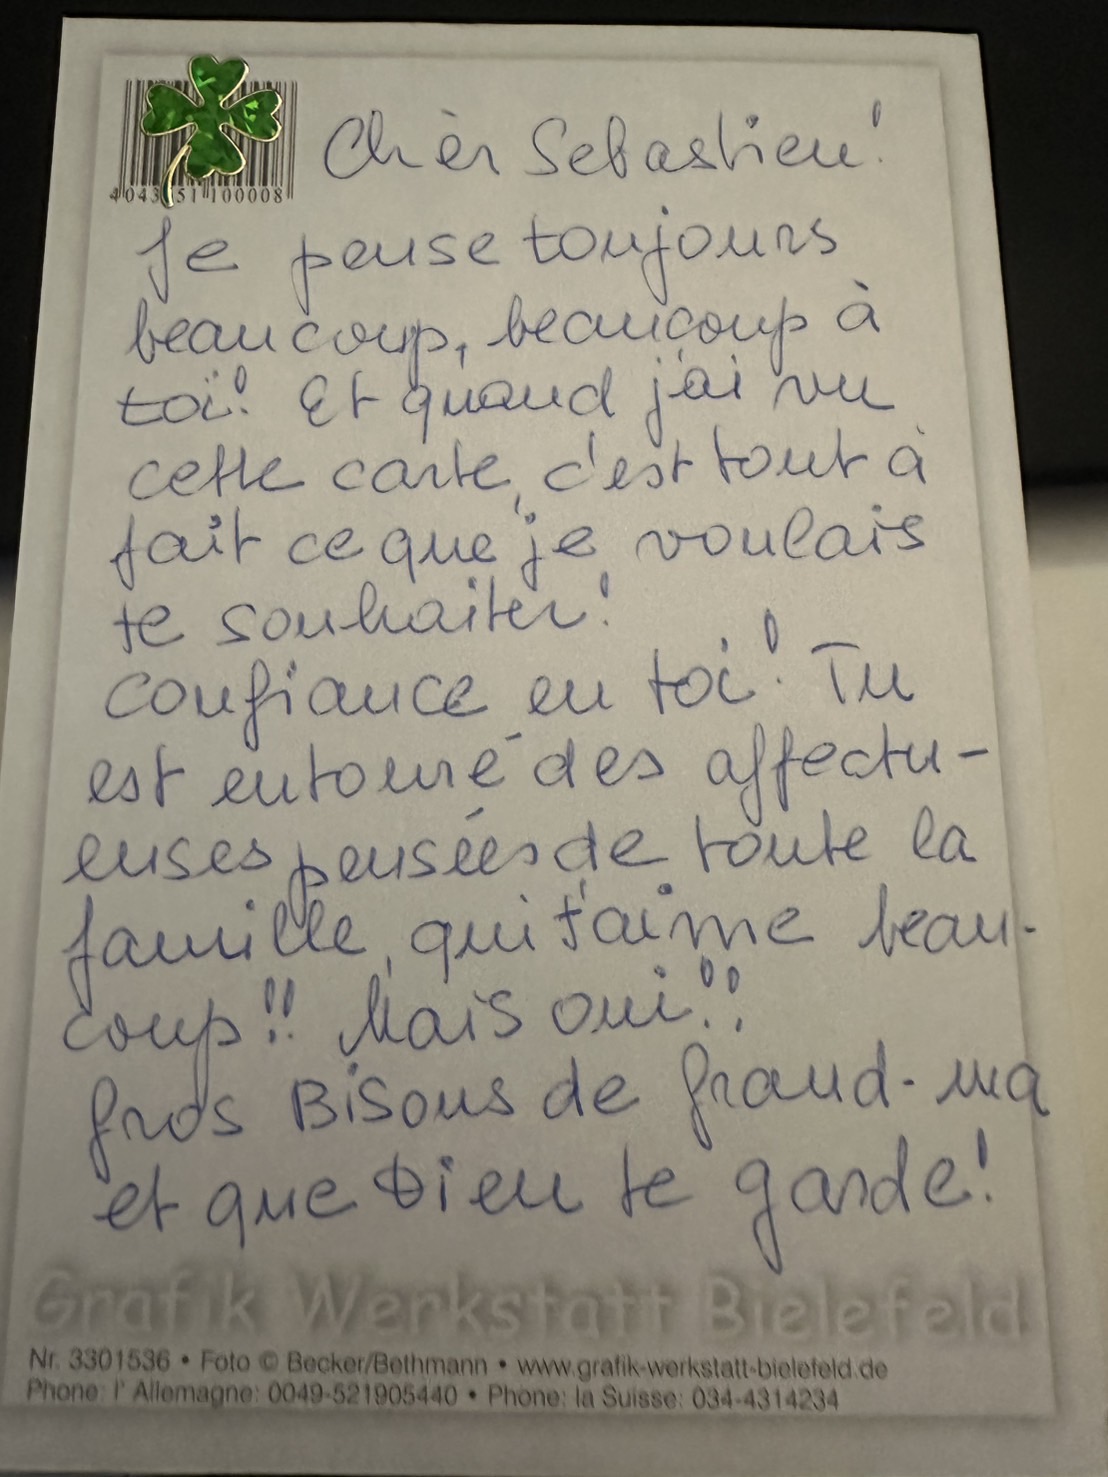 4043 51 100008
Chèr Sebastien!
Je pense toujours
beaucoup, beaucoup à
toi! Et quand j'ai vu
cette carte, c'est tout à
fait ce que je voulais
te souhaiter!
Confiance en toi! Tu
est entouré des affectu-
euses pensées de toute la
famille, qui t'aime beau-
coup!! Mais oui!!
Gros Bisous de Grand-ma
et que Dieu te garde!
Grafik Werkstatt Bielefeld
Nr. 3301536 • Foto © Becker/Bethmann • www.grafik-werkstatt-bielefeld.de
Phone: l' Allemagne: 0049-521905440 • Phone: la Suisse: 034-4314234